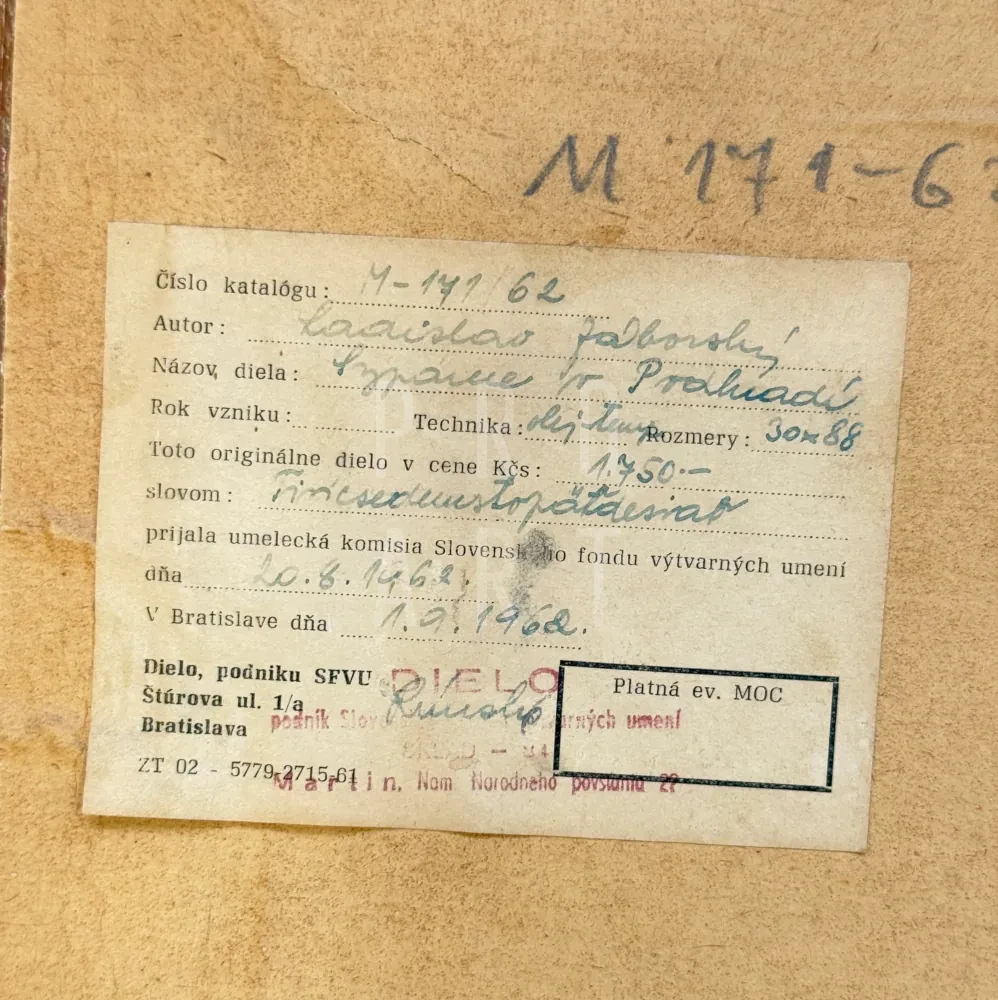 M 171-6
Číslo katalógu: M-171/62
Autor: Ladislav Záborský
Názov diela: Sypárne v Podhradí
Rok vzniku: Technika: olej temp. Rozmery: 30x88
Toto originálne dielo v cene Kčs: 1.750.-
slovom: Tisícsedemstopäťdesiat
prijala umelecká komisia Slovenského fondu výtvarných umení
dňa 20.8.1962.
V Bratislave dňa 1.9.1962.
Dielo, podniku SFVU DIELO Platná ev. MOC
Štúrova ul. 1/a
Bratislava podnik umení
ZT 02 - 5779-2715-61
Martin, Nam Narodneho povstania